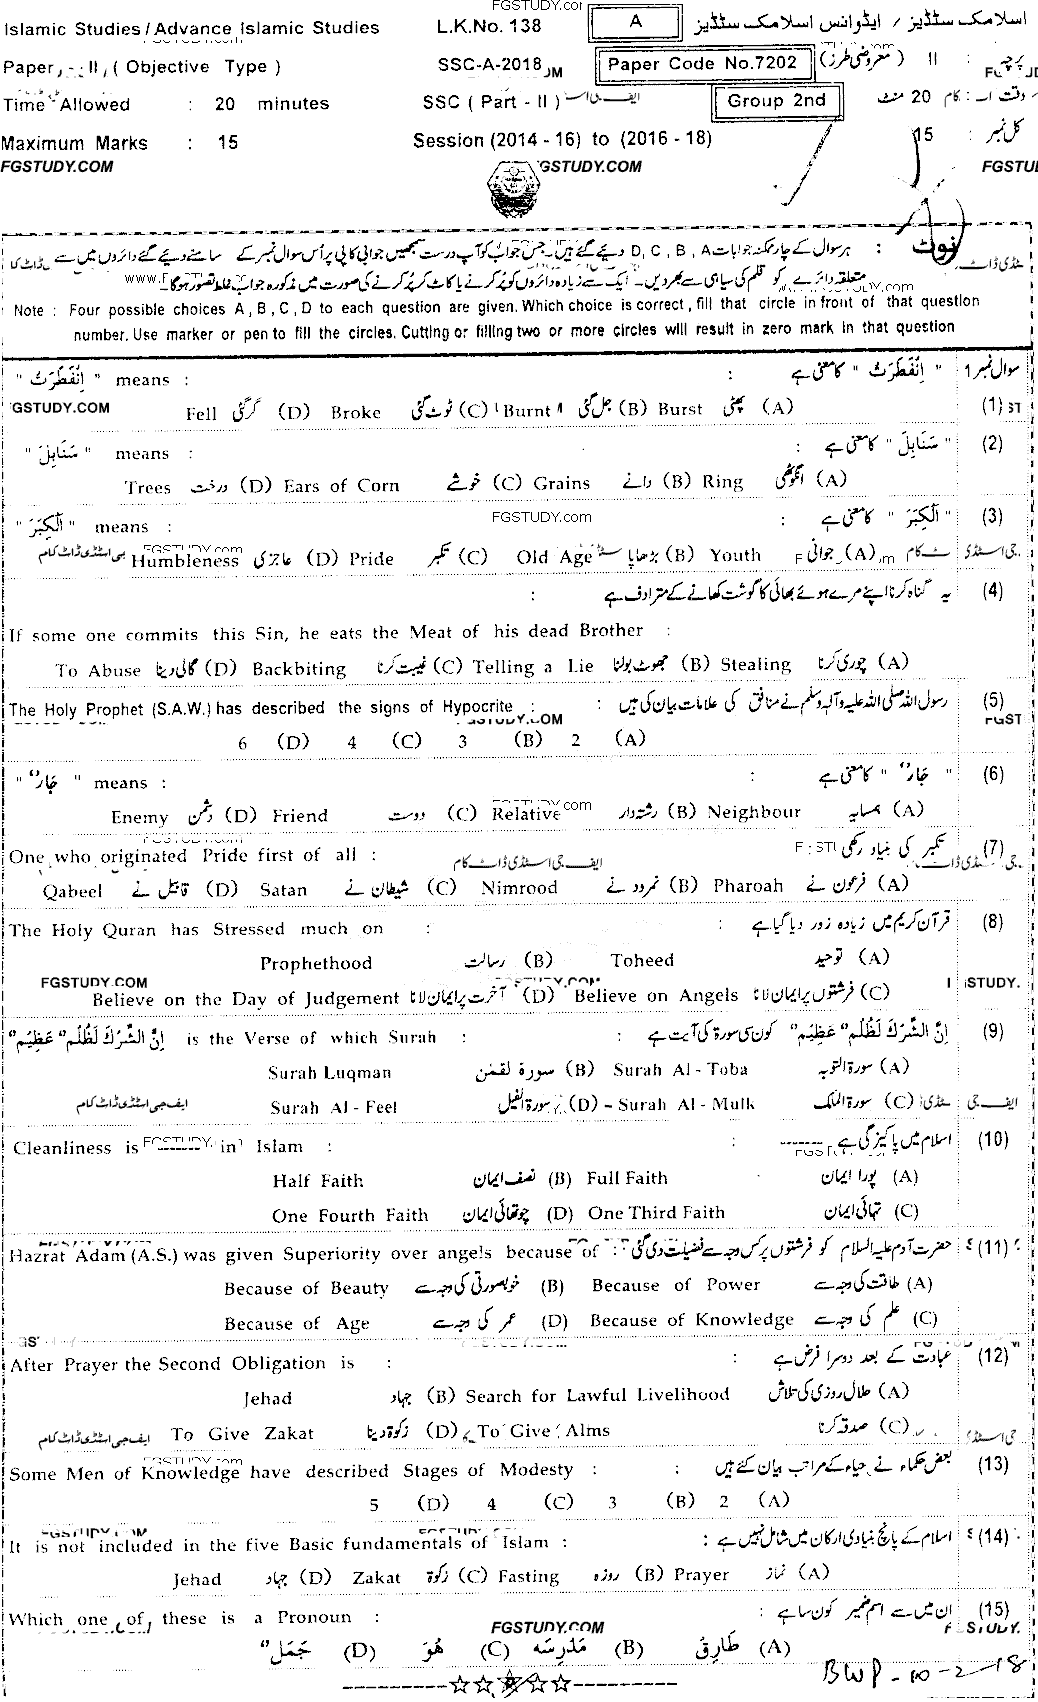 FGSTUDY.com
Islamic Studies/Advance Islamic Studies L.K.No. 138 A اسلامک سٹڈیز / ایڈوانس اسلامک سٹڈیز
Paper - II, ( Objective Type ) SSC-A-2018 Paper Code No.7202 پرچہ : II (معروضی طرز)
Time Allowed : 20 minutes SSC ( Part - II ) Group 2nd وقت : 20 منٹ
Maximum Marks : 15 Session (2014 - 16) to (2016 - 18) کل نمبر : 15
FGSTUDY.COM FGSTUDY.COM FGSTU
نوٹ : ہر سوال کے چار ممکنہ جوابات D , C , B , A دیئے گئے ہیں۔ جس جواب کو آپ درست سمجھیں جوابی کاپی پر اُس سوال نمبر کے سامنے دیئے گئے دائروں میں سے
متعلقہ دائرے کو قلم کی سیاہی سے بھر دیں۔ ایک سے زیادہ دائروں کو پُر کرنے یا کاٹ کر پُر کرنے کی صورت میں مذکورہ جواب غلط تصور ہوگا۔
Note : Four possible choices A, B, C, D to each question are given. Which choice is correct, fill that circle in front of that question
number. Use marker or pen to fill the circles. Cutting or filling two or more circles will result in zero mark in that question
" اِنْفَطَرَتْ " means : : " اِنْفَطَرَتْ " کا معنی ہے سوال نمبر 1
GSTUDY.COM Fell گر گئی (D) Broke ٹوٹ گئی (C) Burnt جل گئی (B) Burst پھٹی (A) (1)
" سَنَابِلَ " means : : " سَنَابِلَ " کا معنی ہے (2)
Trees درخت (D) Ears of Corn خوشے (C) Grains دانے (B) Ring انگوٹھی (A)
" اَلْكِبَرَ " means : FGSTUDY.com : " اَلْكِبَرَ " کا معنی ہے (3)
Humbleness عاجزی (D) Pride تکبر (C) Old Age بڑھاپا (B) Youth جوانی (A)
: یہ گناہ کرنا اپنے مرے ہوئے بھائی کا گوشت کھانے کے مترادف ہے (4)
If some one commits this Sin, he eats the Meat of his dead Brother :
To Abuse گالی دینا (D) Backbiting غیبت کرنا (C) Telling a Lie جھوٹ بولنا (B) Stealing چوری کرنا (A)
The Holy Prophet (S.A.W.) has described the signs of Hypocrite : : رسول اللہ صلی اللہ علیہ وآلہ وسلم نے منافق کی علامات بیان کی ہیں (5)
6 (D) 4 (C) 3 (B) 2 (A)
" جَارٌ " means : : " جَارٌ " کا معنی ہے (6)
Enemy دشمن (D) Friend دوست (C) Relative رشتہ دار (B) Neighbour ہمسایہ (A)
One who originated Pride first of all : تکبر کی بنیاد رکھی (7)
Qabeel قابیل نے (D) Satan شیطان نے (C) Nimrood نمرود نے (B) Pharoah فرعون نے (A)
The Holy Quran has Stressed much on : : قرآن کریم میں زیادہ زور دیا گیا ہے (8)
Prophethood رسالت (B) Toheed توحید (A)
FGSTUDY.COM Believe on the Day of Judgement آخرت پر ایمان لانا (D) Believe on Angels فرشتوں پر ایمان لانا (C)
اِنَّ الشِّرْكَ لَظُلْمٌ عَظِيْمٌ is the Verse of which Surah : : اِنَّ الشِّرْكَ لَظُلْمٌ عَظِيْمٌ کون سی سورۃ کی آیت ہے (9)
Surah Luqman سورۃ لقمٰن (B) Surah Al - Toba سورۃ التوبہ (A)
ایف جی اسٹڈی ڈاٹ کام Surah Al - Feel سورۃ الفیل (D) Surah Al - Mulk سورۃ الملک (C)
Cleanliness is ------- in Islam : : اسلام میں پاکیزگی ہے ------- (10)
Half Faith نصف ایمان (B) Full Faith پورا ایمان (A)
One Fourth Faith چوتھائی ایمان (D) One Third Faith تہائی ایمان (C)
Hazrat Adam (A.S.) was given Superiority over angels because of : حضرت آدم علیہ السلام کو فرشتوں پر کس وجہ سے فضیلت دی گئی ؟ (11)
Because of Beauty خوبصورتی کی وجہ سے (B) Because of Power طاقت کی وجہ سے (A)
Because of Age عمر کی وجہ سے (D) Because of Knowledge علم کی وجہ سے (C)
After Prayer the Second Obligation is : : عبادت کے بعد دوسرا فرض ہے (12)
Jehad جہاد (B) Search for Lawful Livelihood حلال روزی کی تلاش (A)
ایف جی اسٹڈی ڈاٹ کام To Give Zakat زکوٰۃ دینا (D) To Give Alms صدقہ کرنا (C)
Some Men of Knowledge have described Stages of Modesty : : بعض حکماء نے حیاء کے مراتب بیان کئے ہیں (13)
5 (D) 4 (C) 3 (B) 2 (A)
It is not included in the five Basic fundamentals of Islam : : اسلام کے پانچ بنیادی ارکان میں شامل نہیں ہے (14)
Jehad جہاد (D) Zakat زکوٰۃ (C) Fasting روزہ (B) Prayer نماز (A)
Which one of these is a Pronoun : : ان میں سے اسم ضمیر کون سا ہے (15)
FGSTUDY.COM
جَمَلٌ (D) هُوَ (C) مَدْرِسَه (B) طَارِقٌ (A)
BWP-10-2-18